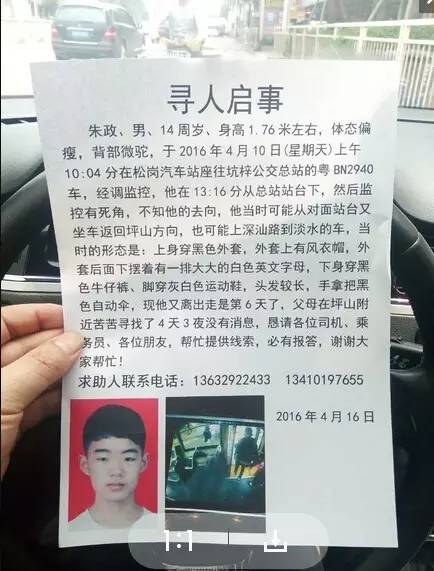 寻人启事
朱政、男、14周岁、身高1.76米左右，体态偏
瘦，背部微驼，于2016年4月10日(星期天)上午
10:04分在松岗汽车站座往坑梓公交总站的粤BN2940
车，经调监控，他在13:16分从总站站台下，然后监
控有死角，不知他的去向，他当时可能从对面站台又
坐车返回坪山方向，也可能上深汕路到淡水的车，当
时的形态是：上身穿黑色外套，外套上有风衣帽，外
套后面下摆着有一排大大的白色英文字母，下身穿黑
色牛仔裤、脚穿灰白色运动鞋，头发较长，手拿把黑
色自动伞，现他又离出走是第6天了，父母在坪山附
近苦苦寻找了4天3夜没有消息，恳请各位司机、乘
务员、各位朋友，帮忙提供线索，必有报答，谢谢大
家帮忙！
求助人联系电话：13632922433 13410197655
2016年4月16日
1:1